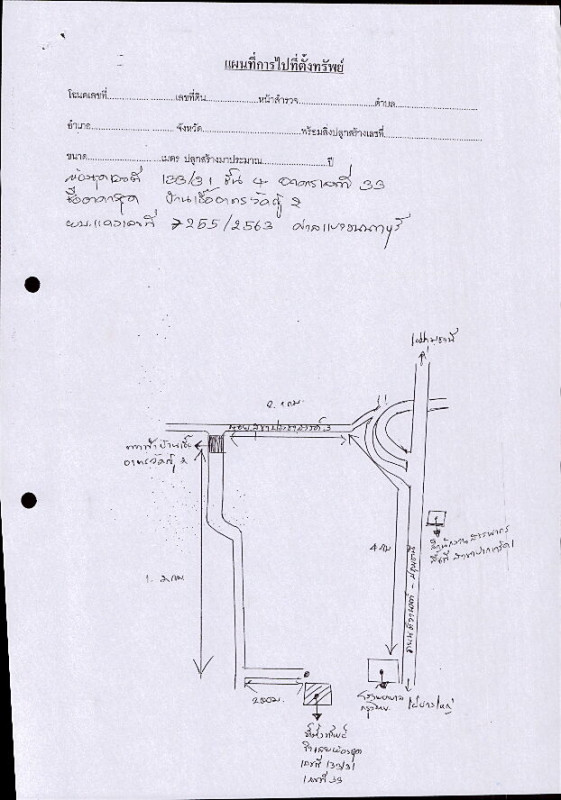 แผนที่การไปที่ตั้งทรัพย์
โฉนดเลขที่..........เลขที่ดิน..........หน้าสำรวจ..........ตำบล..........
อำเภอ..........จังหวัด..........พร้อมสิ่งปลูกสร้างเลขที่..........
ขนาด..........เมตร ปลูกสร้างมาประมาณ..........ปี
ห้องชุดเลขที่ 133/31 ชั้น 4 อาคารเลขที่ 33
ชื่ออาคารชุด บ้านเอื้ออาทรวัดกู้ 2
ผบ.แดงเลขที่ 7255/2563 ศาลแขวงนนทบุรี
ไปปทุมธานี
2.1 กม.
ถนนสุขาประชาสรรค์ 3
ทางเข้าบ้านเอื้อ
อาทรวัดกู้ 2
4 กม
ถนนติวานนท์ - ปทุมธานี
สำนักงานสรรพากร
พื้นที่ สาขาปากเกร็ด
1. กม
250 ม.
โรงพยาบาล
ไปบางใหญ่
ที่ตั้งทรัพย์
ห้องชุด
เลขที่ 133/31
เลขที่ 33